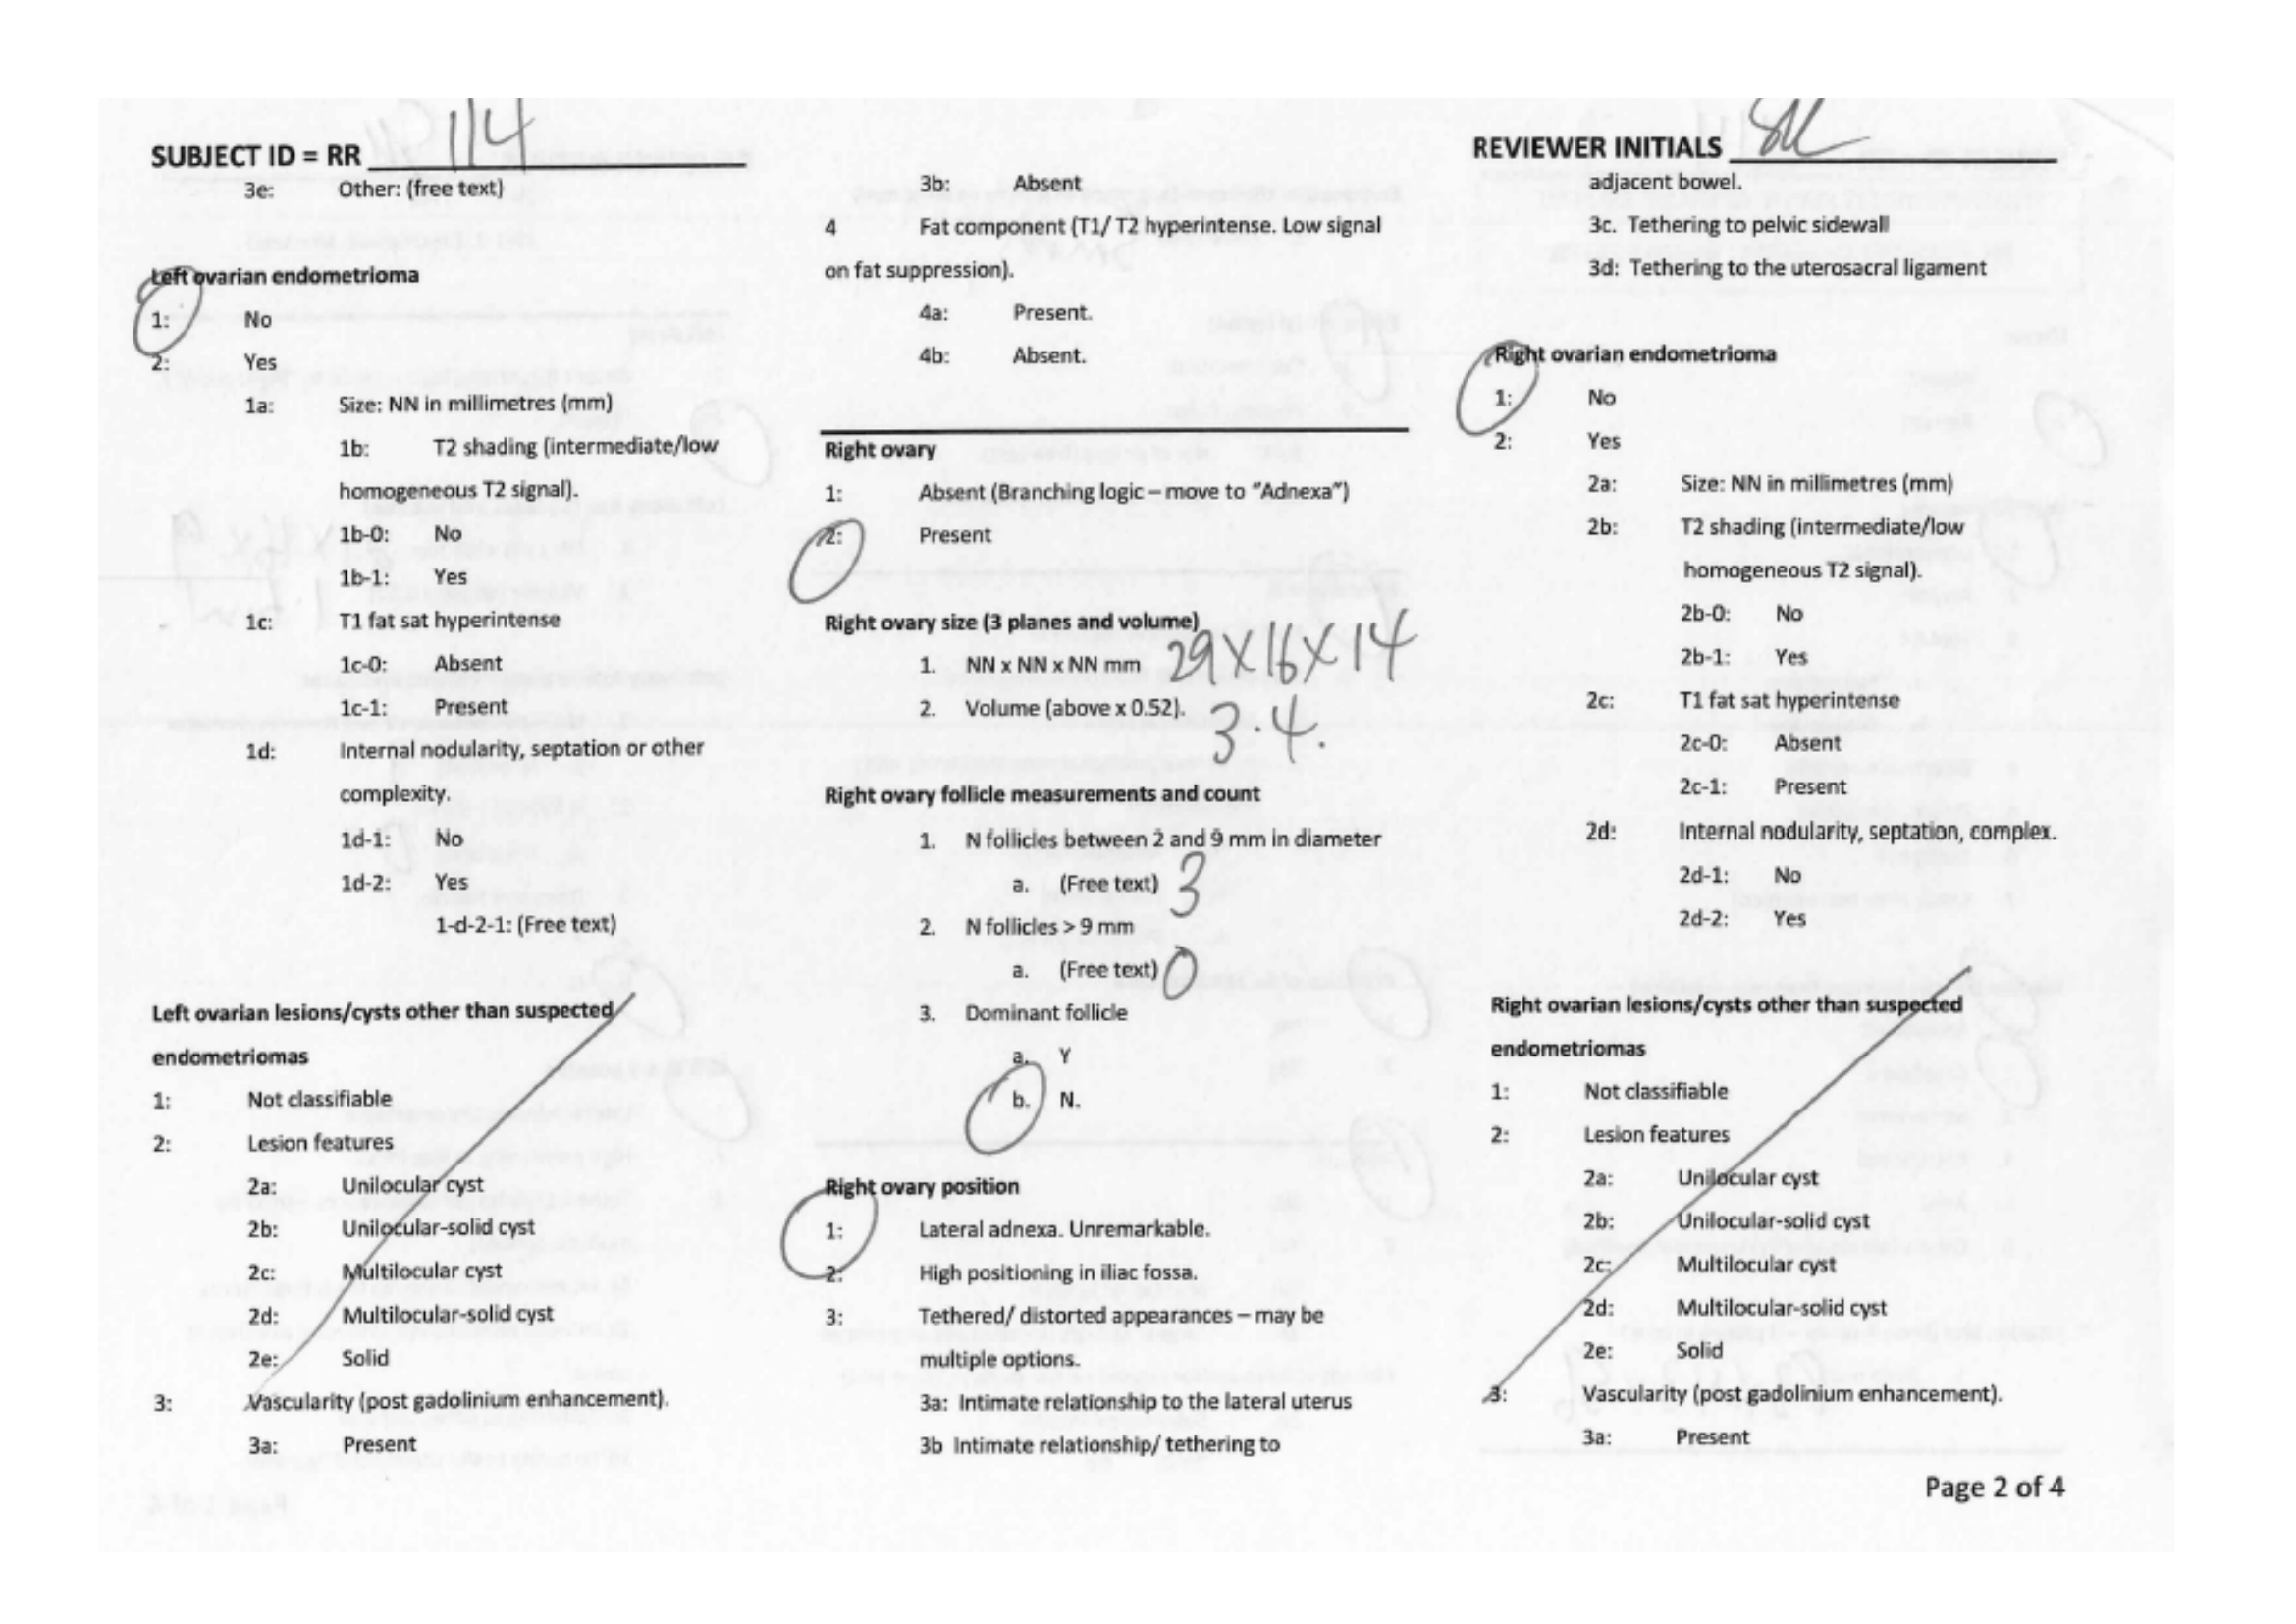 SUBJECT ID = RR 114
3e: Other: (free text)
Left ovarian endometrioma
1: No
2: Yes
1a: Size: NN in millimetres (mm)
1b: T2 shading (intermediate/low
homogeneous T2 signal).
1b-0: No
1b-1: Yes
1c: T1 fat sat hyperintense
1c-0: Absent
1c-1: Present
1d: Internal nodularity, septation or other
complexity.
1d-1: No
1d-2: Yes
1-d-2-1: (Free text)
Left ovarian lesions/cysts other than suspected
endometriomas
1: Not classifiable
2: Lesion features
2a: Unilocular cyst
2b: Unilocular-solid cyst
2c: Multilocular cyst
2d: Multilocular-solid cyst
2e: Solid
3: Vascularity (post gadolinium enhancement).
3a: Present
3b: Absent
4 Fat component (T1/ T2 hyperintense. Low signal
on fat suppression).
4a: Present.
4b: Absent.
Right ovary
1: Absent (Branching logic – move to "Adnexa")
2: Present
Right ovary size (3 planes and volume)
1. NN x NN x NN mm 29X16X14
2. Volume (above x 0.52). 3.4.
Right ovary follicle measurements and count
1. N follicles between 2 and 9 mm in diameter
a. (Free text) 3
2. N follicles > 9 mm
a. (Free text) 0
3. Dominant follicle
a. Y
b. N.
Right ovary position
1: Lateral adnexa. Unremarkable.
2: High positioning in iliac fossa.
3: Tethered/ distorted appearances – may be
multiple options.
3a: Intimate relationship to the lateral uterus
3b Intimate relationship/ tethering to
REVIEWER INITIALS
adjacent bowel.
3c. Tethering to pelvic sidewall
3d: Tethering to the uterosacral ligament
Right ovarian endometrioma
1: No
2: Yes
2a: Size: NN in millimetres (mm)
2b: T2 shading (intermediate/low
homogeneous T2 signal).
2b-0: No
2b-1: Yes
2c: T1 fat sat hyperintense
2c-0: Absent
2c-1: Present
2d: Internal nodularity, septation, complex.
2d-1: No
2d-2: Yes
Right ovarian lesions/cysts other than suspected
endometriomas
1: Not classifiable
2: Lesion features
2a: Unilocular cyst
2b: Unilocular-solid cyst
2c: Multilocular cyst
2d: Multilocular-solid cyst
2e: Solid
3: Vascularity (post gadolinium enhancement).
3a: Present
Page 2 of 4